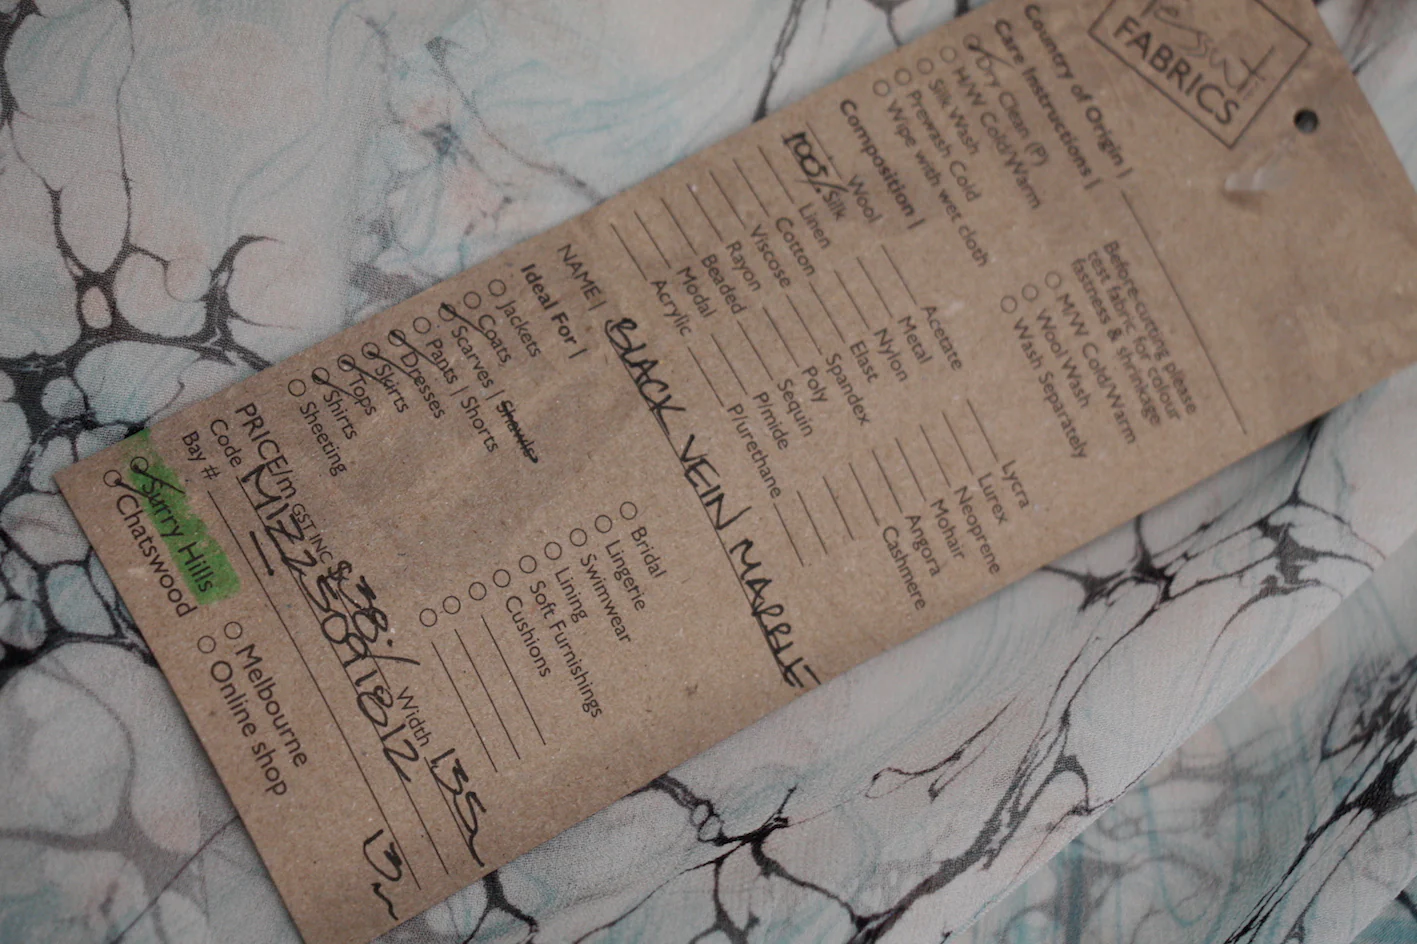 Tessuti
FABRICS
Country of Origin |
Care Instructions |
Dry Clean (P)
H/W Cold/Warm
Silk Wash
Prewash Cold
Wipe with wet cloth
Before cutting please
test fabric for colour
fastness & shrinkage
M/W Cold/Warm
Wool Wash
Wash Separately
Composition |
Wool Acetate Lycra
100% Silk Metal Lurex
Linen Nylon Neoprene
Cotton Elast Mohair
Viscose Spandex Angora
Rayon Poly Cashmere
Beaded Sequin
Modal P/mide
Acrylic P/urethane
NAME | BLACK VEIN MARBLE
Ideal For |
Jackets Bridal
Coats Lingerie
Scarves | Shawls Swimwear
Pants | Shorts Lining
Dresses Soft Furnishings
Skirts Cushions
Tops
Shirts
Sheeting
PRICE/m GST INC $38/ Width 135
Code MIZZ3091812
Bay #
Surry Hills Melbourne
Chatswood Online shop